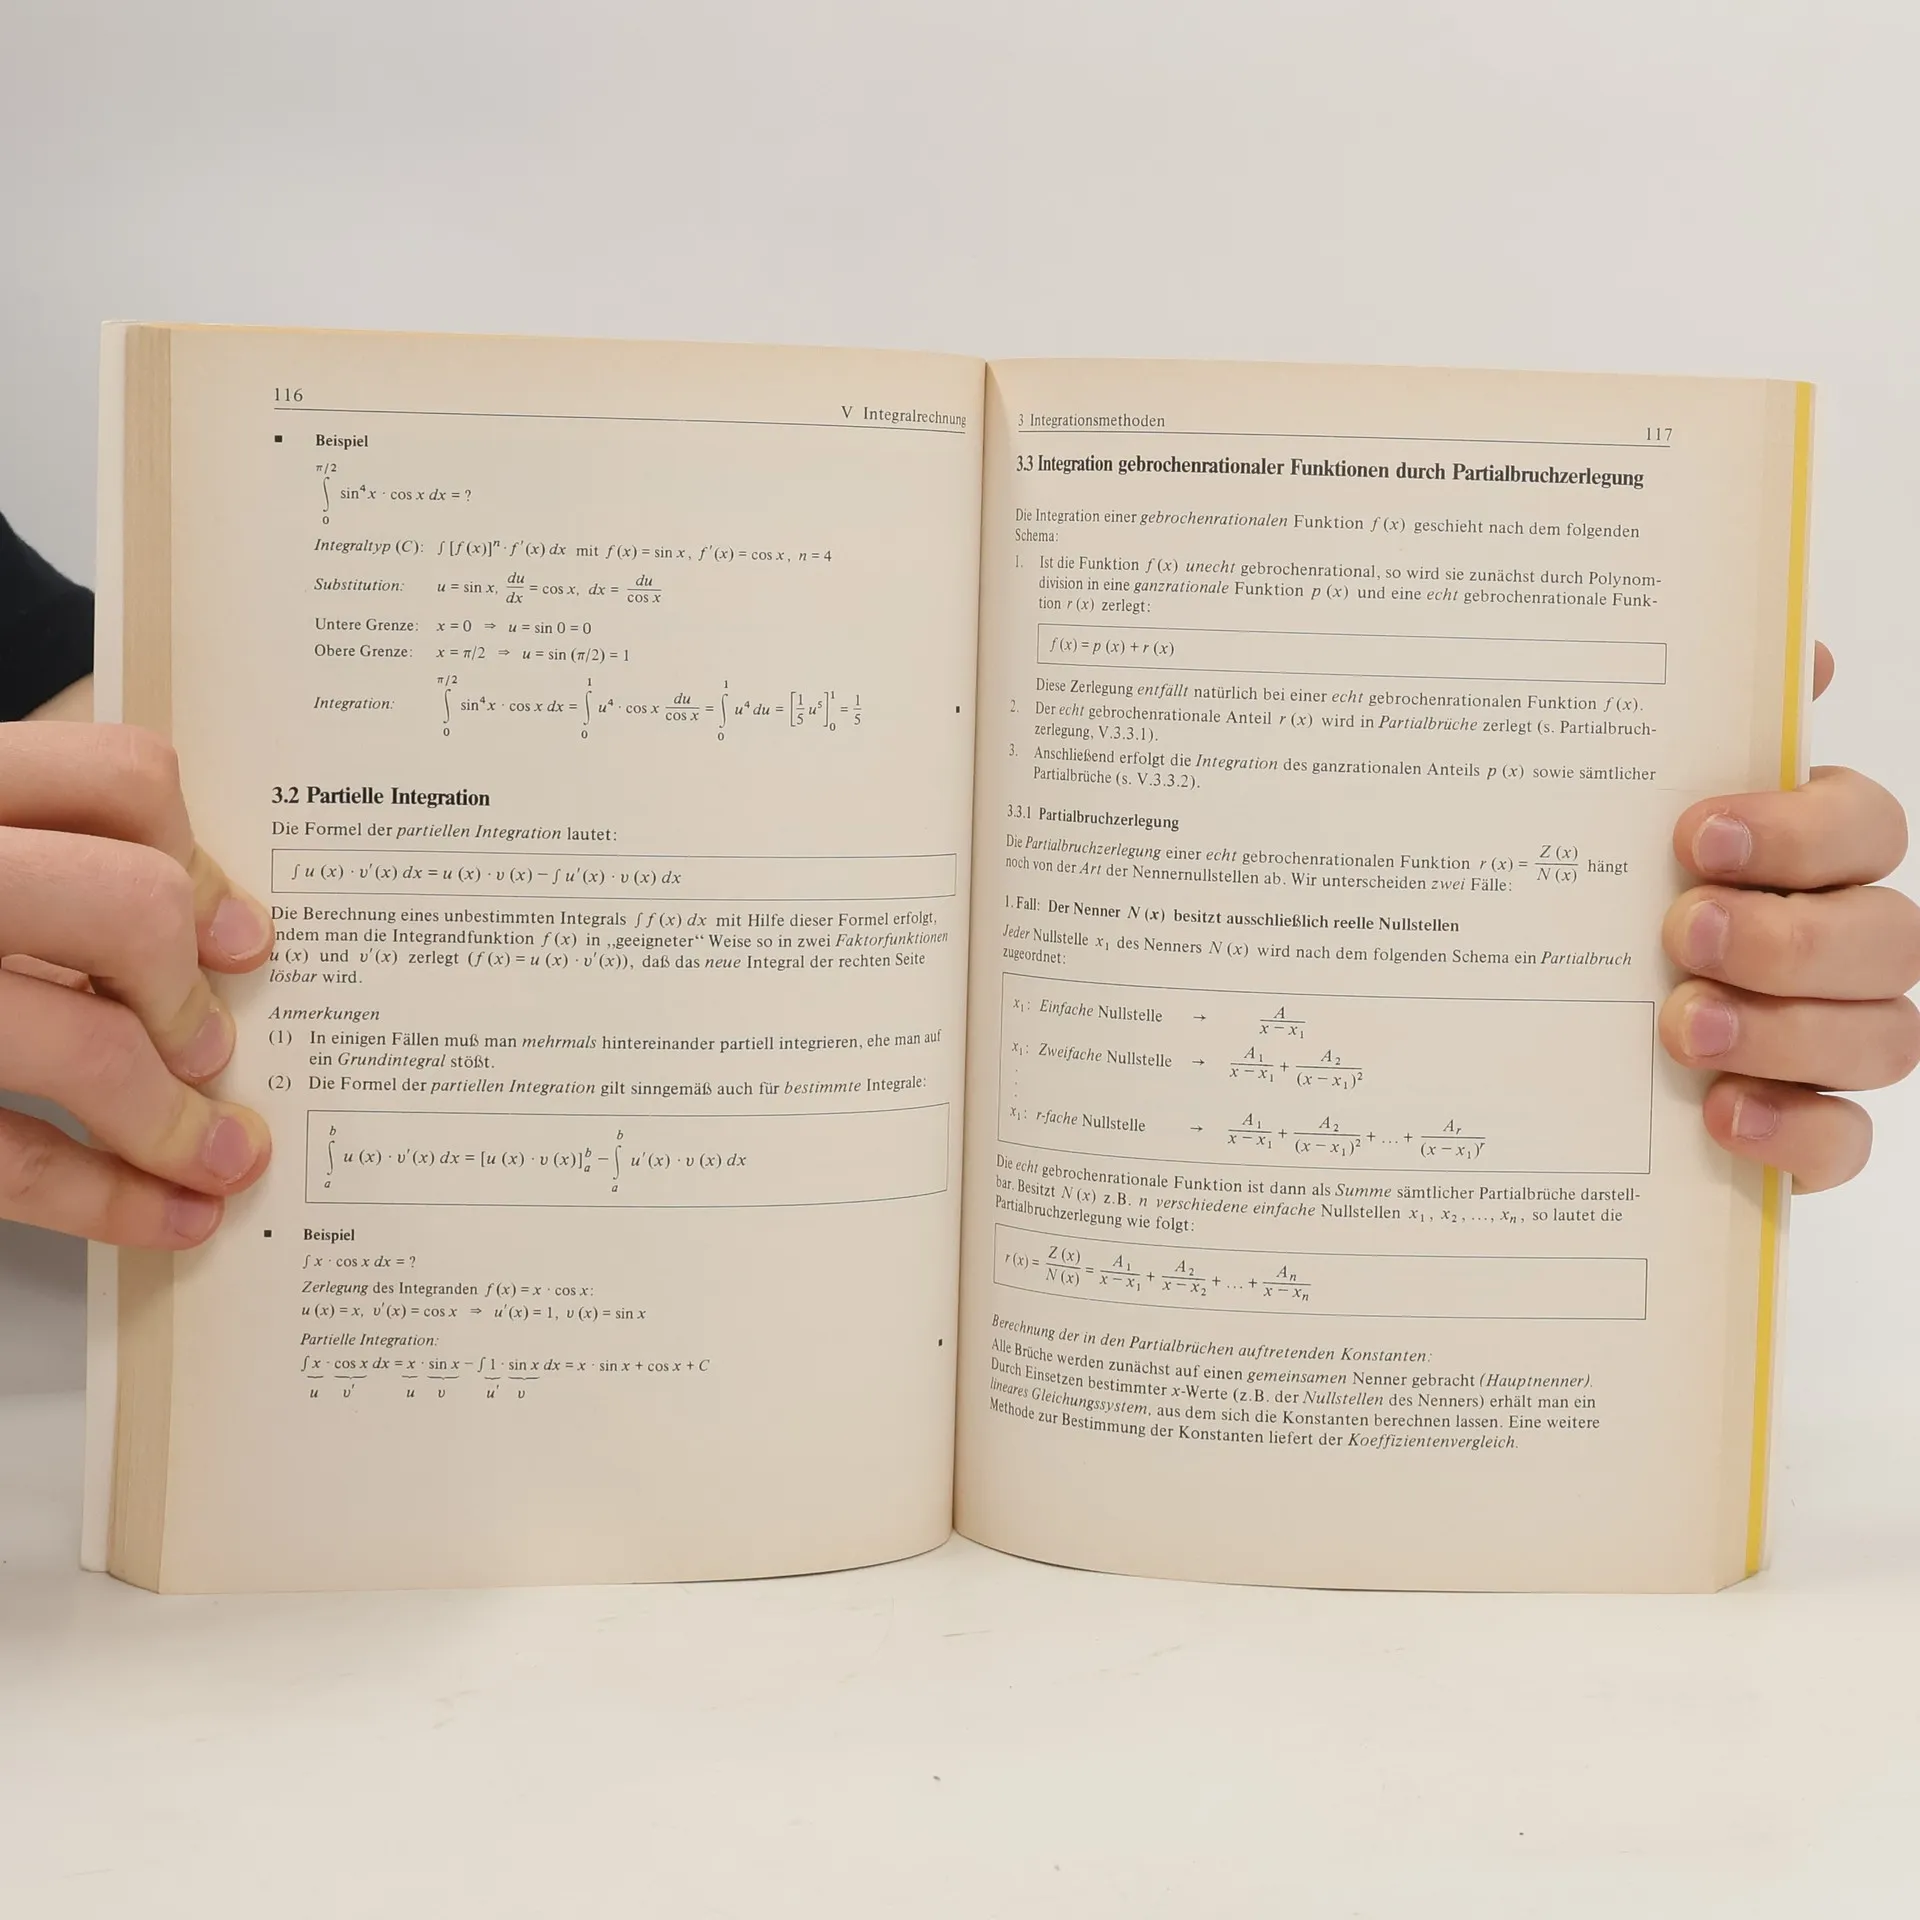 116
V Integralrechnung
■ Beispiel
π/2
∫ sin⁴x · cos x dx = ?
0
Integraltyp (C): ∫ [f(x)]ⁿ · f'(x) dx mit f(x) = sin x, f'(x) = cos x, n = 4
Substitution: u = sin x, du/dx = cos x, dx = du/cos x
Untere Grenze: x = 0 ⇒ u = sin 0 = 0
Obere Grenze: x = π/2 ⇒ u = sin (π/2) = 1
π/2 1 1
Integration: ∫ sin⁴x · cos x dx = ∫ u⁴ · cos x du/cos x = ∫ u⁴ du = [1/5 u⁵]₀¹ = 1/5 ■
0 0 0
3.2 Partielle Integration
Die Formel der partiellen Integration lautet:
∫ u(x) · v'(x) dx = u(x) · v(x) − ∫ u'(x) · v(x) dx
Die Berechnung eines unbestimmten Integrals ∫ f(x) dx mit Hilfe dieser Formel erfolgt,
indem man die Integrandfunktion f(x) in „geeigneter“ Weise so in zwei Faktorfunktionen
u(x) und v'(x) zerlegt (f(x) = u(x) · v'(x)), daß das neue Integral der rechten Seite
lösbar wird.
Anmerkungen
(1) In einigen Fällen muß man mehrmals hintereinander partiell integrieren, ehe man auf
ein Grundintegral stößt.
(2) Die Formel der partiellen Integration gilt sinngemäß auch für bestimmte Integrale:
b b
∫ u(x) · v'(x) dx = [u(x) · v(x)]ₐᵇ − ∫ u'(x) · v(x) dx
a a
■ Beispiel
∫ x · cos x dx = ?
Zerlegung des Integranden f(x) = x · cos x:
u(x) = x, v'(x) = cos x ⇒ u'(x) = 1, v(x) = sin x
Partielle Integration: ■
∫ x · cos x dx = x · sin x − ∫ 1 · sin x dx = x · sin x + cos x + C
u v' u v u' v
3 Integrationsmethoden
117
3.3 Integration gebrochenrationaler Funktionen durch Partialbruchzerlegung
Die Integration einer gebrochenrationalen Funktion f(x) geschieht nach dem folgenden
Schema:
1. Ist die Funktion f(x) unecht gebrochenrational, so wird sie zunächst durch Polynom-
division in eine ganzrationale Funktion p(x) und eine echt gebrochenrationale Funk-
tion r(x) zerlegt:
f(x) = p(x) + r(x)
Diese Zerlegung entfällt natürlich bei einer echt gebrochenrationalen Funktion f(x).
2. Der echt gebrochenrationale Anteil r(x) wird in Partialbrüche zerlegt (s. Partialbruch-
zerlegung, V.3.3.1).
3. Anschließend erfolgt die Integration des ganzrationalen Anteils p(x) sowie sämtlicher
Partialbrüche (s. V.3.3.2).
3.3.1 Partialbruchzerlegung
Die Partialbruchzerlegung einer echt gebrochenrationalen Funktion r(x) = Z(x)/N(x) hängt
noch von der Art der Nennernullstellen ab. Wir unterscheiden zwei Fälle:
1. Fall: Der Nenner N(x) besitzt ausschließlich reelle Nullstellen
Jeder Nullstelle x₁ des Nenners N(x) wird nach dem folgenden Schema ein Partialbruch
zugeordnet:
x₁: Einfache Nullstelle → A/(x − x₁)
x₁: Zweifache Nullstelle → A₁/(x − x₁) + A₂/(x − x₁)²
⋮
x₁: r-fache Nullstelle → A₁/(x − x₁) + A₂/(x − x₁)² + ... + Aᵣ/(x − x₁)ʳ
Die echt gebrochenrationale Funktion ist dann als Summe sämtlicher Partialbrüche darstell-
bar. Besitzt N(x) z.B. n verschiedene einfache Nullstellen x₁, x₂, ..., xₙ, so lautet die
Partialbruchzerlegung wie folgt:
r(x) = Z(x)/N(x) = A₁/(x − x₁) + A₂/(x − x₂) + ... + Aₙ/(x − xₙ)
Berechnung der in den Partialbrüchen auftretenden Konstanten:
Alle Brüche werden zunächst auf einen gemeinsamen Nenner gebracht (Hauptnenner).
Durch Einsetzen bestimmter x-Werte (z.B. der Nullstellen des Nenners) erhält man ein
lineares Gleichungssystem, aus dem sich die Konstanten berechnen lassen. Eine weitere
Methode zur Bestimmung der Konstanten liefert der Koeffizientenvergleich.